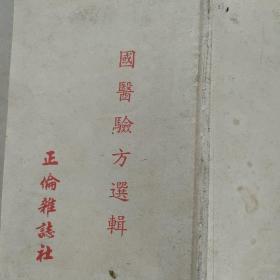 國醫驗方選輯
正倫雜誌社